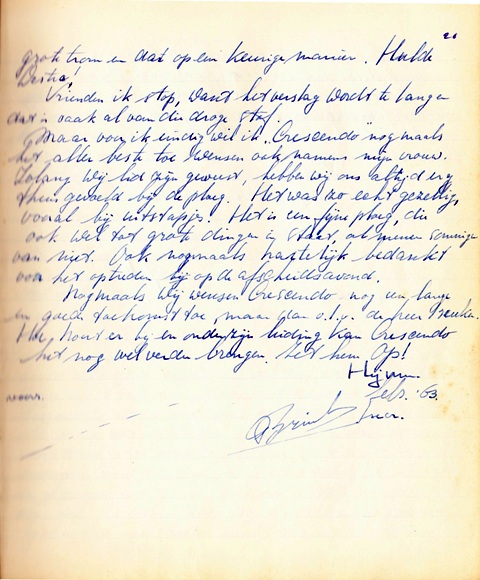 21
grote trom en dat op een keurige manier. Hulde
Vrienden ik stop, want het verslag wordt te lang en
dat is vaak al van die droge stof.
Maar voor ik eindig wil ik "Crescendo" nogmaals
het aller beste toe wensen ook namens mijn vrouw.
Zolang wij lid zijn geweest, hebben wij ons altijd erg
thuis gevoeld bij de ploeg. Het was zo echt gezellig,
vooral bij uitstapjes. Het is een fijne ploeg, die
ook wel tot grote dingen in staat, al menen sommigen
van niet. Ook nogmaals hartelijk bedankt
voor het optreden bij op de afscheidsavond.
Nogmaals wij wensen Crescendo nog een lange
en goede toekomst toe, maar dan o.l.v. de heer
Hij hoort er bij en onder zijn leiding kan Crescendo
het nog wel verder brengen. Zet hem op!
Febr. '63.